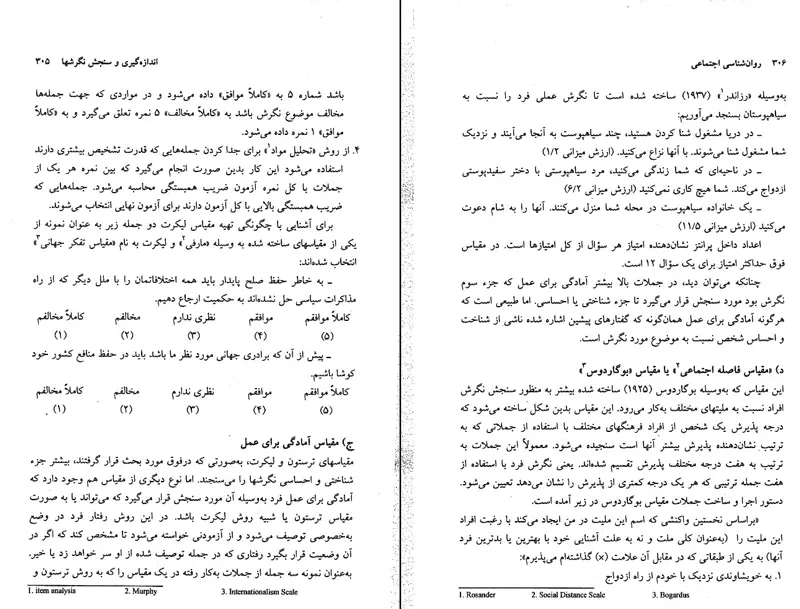 اندازه‌گیری و سنجش نگرشها ۳۰۵
باشد شماره ۵ به «کاملاً موافق» داده می‌شود و در مواردی که جهت جمله‌ها
مخالف موضوع نگرش باشد به «کاملاً مخالف» ۵ نمره تعلق می‌گیرد و به «کاملاً
موافق» ۱ نمره داده می‌شود.
۴. از روش «تحلیل مواد۱» برای جدا کردن جمله‌هایی که قدرت تشخیص بیشتری دارند
استفاده می‌شود این کار بدین صورت انجام می‌گیرد که بین نمره هر یک از
جملات با کل نمره آزمون ضریب همبستگی محاسبه می‌شود. جمله‌هایی که
ضریب همبستگی بالایی با کل آزمون دارند برای آزمون نهایی انتخاب می‌شوند.
برای آشنایی با چگونگی تهیه مقیاس لیکرت دو جمله زیر به عنوان نمونه از
یکی از مقیاسهای ساخته شده به وسیله «مارفی۲» و لیکرت به نام «مقیاس تفکر جهانی۳»
انتخاب شده‌اند:
ـ به خاطر حفظ صلح پایدار باید همه اختلافاتمان را با ملل دیگر که از راه
مذاکرات سیاسی حل نشده‌اند به حکمیت ارجاع دهیم.
کاملاً موافقم موافقم نظری ندارم مخالفم کاملاً مخالفم
(۵) (۴) (۳) (۲) (۱)
ـ پیش از آن که برادری جهانی مورد نظر ما باشد باید در حفظ منافع کشور خود
کوشا باشیم.
کاملاً موافقم موافقم نظری ندارم مخالفم کاملاً مخالفم
(۵) (۴) (۳) (۲) (۱)
ج) مقیاس آمادگی برای عمل
مقیاسهای ترستون و لیکرت، به‌صورتی که درفوق مورد بحث قرار گرفتند، بیشتر جزء
شناختی و احساسی نگرشها را می‌سنجند. اما نوع دیگری از مقیاس هم وجود دارد که
آمادگی برای عمل فرد به‌وسیله آن مورد سنجش قرار می‌گیرد که می‌تواند یا به صورت
مقیاس ترستون یا شبیه روش لیکرت باشد. در این روش رفتار فرد در وضع
به‌خصوصی توصیف می‌شود و از آزمودنی خواسته می‌شود تا مشخص کند که اگر در
آن وضعیت قرار بگیرد رفتاری که در جمله توصیف شده از او سر خواهد زد یا خیر.
به‌عنوان نمونه سه جمله از جملات به‌کار رفته در یک مقیاس را که به روش ترستون و
1. item analysis 2. Murphy 3. Internationalism Scale
۳۰۶ روان‌شناسی اجتماعی
به‌وسیله «رزاندر۱» (۱۹۳۷) ساخته شده است تا نگرش عملی فرد را نسبت به
سیاهپوستان بسنجد می‌آوریم:
ـ در دریا مشغول شنا کردن هستید، چند سیاهپوست به آنجا می‌آیند و نزدیک
شما مشغول شنا می‌شوند. با آنها نزاع می‌کنید. (ارزش میزانی ۱/۲)
ـ در ناحیه‌ای که شما زندگی می‌کنید، مرد سیاهپوستی با دختر سفیدپوستی
ازدواج می‌کند. شما هیچ کاری نمی‌کنید (ارزش میزانی ۶/۲)
ـ یک خانواده سیاهپوست در محله شما منزل می‌کنند. آنها را به شام دعوت
می‌کنید (ارزش میزانی ۱۱/۵)
اعداد داخل پرانتز نشان‌دهنده امتیاز هر سؤال از کل امتیازها است. در مقیاس
فوق حداکثر امتیاز برای یک سؤال ۱۲ است.
چنانکه می‌توان دید، در جملات بالا بیشتر آمادگی برای عمل که جزء سوم
نگرش بود مورد سنجش قرار می‌گیرد تا جزء شناختی یا احساسی. اما طبیعی است که
هرگونه آمادگی برای عمل همان‌گونه که گفتارهای پیشین اشاره شده ناشی از شناخت
و احساس شخص نسبت به موضوع مورد نگرش است.
د) «مقیاس فاصله اجتماعی۲» یا مقیاس «بوگاردوس۳»
این مقیاس که به‌وسیله بوگاردوس (۱۹۲۵) ساخته شده بیشتر به منظور سنجش نگرش
افراد نسبت به ملیتهای مختلف به‌کار می‌رود. این مقیاس بدین شکل ساخته می‌شود که
درجه پذیرش یک شخص از افراد فرهنگهای مختلف با استفاده از جملاتی که به
ترتیب نشان‌دهنده پذیرش بیشتر آنها است سنجیده می‌شود. معمولاً این جملات به
ترتیب به هفت درجه مختلف پذیرش تقسیم شده‌اند. یعنی نگرش فرد با استفاده از
هفت جمله ترتیبی که هر یک درجه کمتری از پذیرش را نشان می‌دهد تعیین می‌شود.
دستور اجرا و ساخت جملات مقیاس بوگاردوس در زیر آمده است.
«براساس نخستین واکنشی که اسم این ملیت در من ایجاد می‌کند با رغبت افراد
این ملیت را (به‌عنوان کلی ملت و نه به علت آشنایی خود با بهترین یا بدترین فرد
آنها) به یکی از طبقاتی که در مقابل آن علامت (×) گذاشته‌ام می‌پذیرم»:
۱. به خویشاوندی نزدیک با خودم از راه ازدواج
1. Rosander 2. Social Distance Scale 3. Bogardus